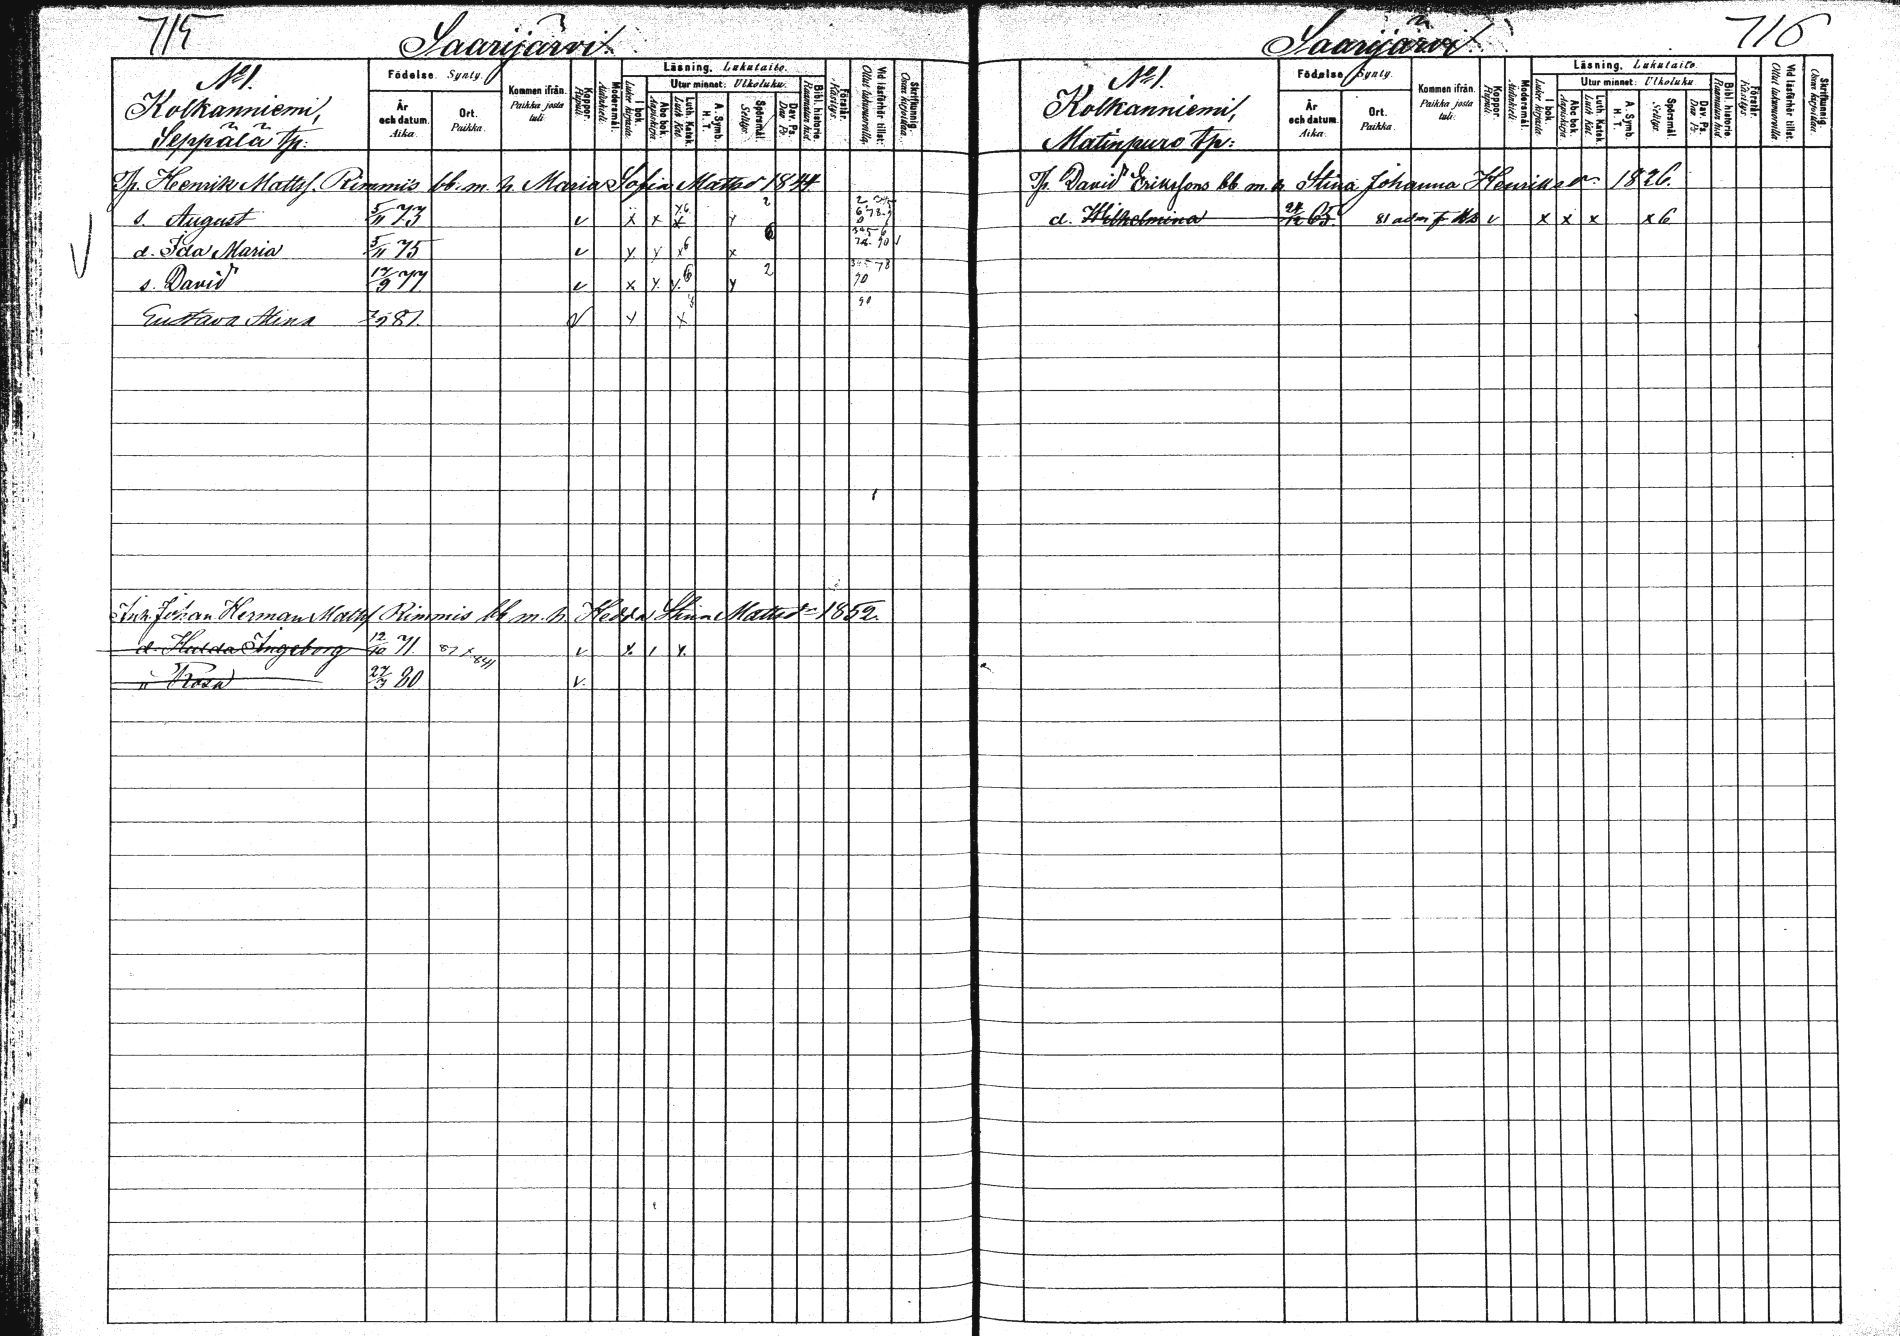 715
Saarijärvi.
No 1.
Kolkanniemi,
Seppälä tp:
Födelse. Synty.
År och datum. Aika.
Ort. Paikka.
Kommen ifrån. Paikka josta tuli.
Koppor. Rupuli.
Modersmål. Äidinkieli.
Läsning. Lukutaito.
I bok. Luku kirjasta.
Utur minnet: Ulkoluku.
Abc bok. Aapiskirja.
Luth. Katek. Luth. Kat.
A. Symb. H. T.
Spörsmål. Selitys.
Dav. Ps. Dav. Ps.
Bibl. historie. Raamatun hist.
Förstår. Käsitys.
Vid läsförhör tillst. Ollut lukuvuoroilla.
Skrifkunnig. Osaa kirjoittaa.
Tp. Henrik Mattss. Rimmis bb. m. h. Maria Sofia Mattsd 1844
s. August 5/11 73 v x x x 2
d. Ida Maria 5/11 75 v x x x 6 x 6
s. David 17/9 77 v x x x 6 x 2
90
Gustava Stina 81. v x x
90
Johan Herman Mattss Rimmis bb m. h. Hedda Stina Mattsdr 1852.
d. Hulda Ingeborg 12/10 71. v x x
" Rosa 27/3 80 v.
716
Saarijärvi.
No 1.
Kolkanniemi,
Matinpuro tp:
Födelse. Synty.
År och datum. Aika.
Ort. Paikka.
Kommen ifrån. Paikka josta tuli.
Koppor. Rupuli.
Modersmål. Äidinkieli.
Läsning. Lukutaito.
I bok. Luku kirjasta.
Utur minnet: Ulkoluku.
Abc bok. Aapiskirja.
Luth. Katek. Luth. Kat.
A. Symb. H. T.
Spörsmål. Selitys.
Dav. Ps. Dav. Ps.
Bibl. historie. Raamatun hist.
Förstår. Käsitys.
Vid läsförhör tillst. Ollut lukuvuoroilla.
Skrifkunnig. Osaa kirjoittaa.
Tp. David Erikssons bb. m. h Stina Johanna Henriksdr. 1826.
d. Wilhelmina 24/12 65. 81 adm v x x x x 6